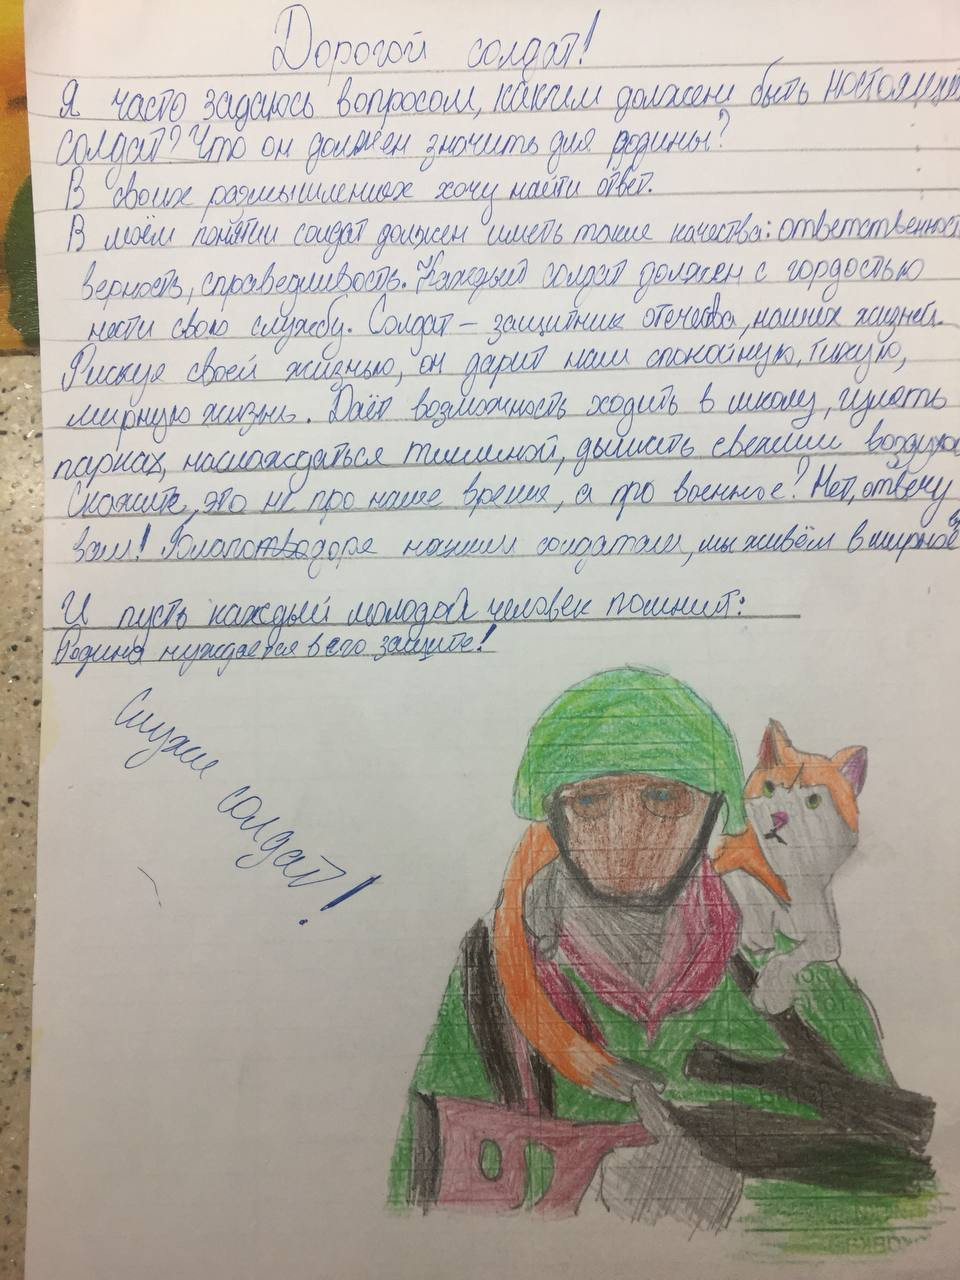 Дорогой солдат!
Я часто задаюсь вопросом, каким должен быть настоящий
солдат? Что он должен значить для родины?
В своих размышлениях хочу найти ответ.
В моём понятии солдат должен иметь такие качества: ответственност
верность, справедливость. Каждый солдат должен с гордостью
нести свою службу. Солдат – защитник отечества, наших жизней.
Рискуя своей жизнью, он дарит нам спокойную, тихую,
мирную жизнь. Даёт возможность ходить в школу, гулять
парках, наслаждаться тишиной, дышать свежим воздухо
Скажите, это не про наше время, а про военное? Нет, отвечу
вам! нашим солдатам, мы живём в мирное
И пусть каждый молодой человек помнит:
Родина нуждается в его защите!
Служи солдат!